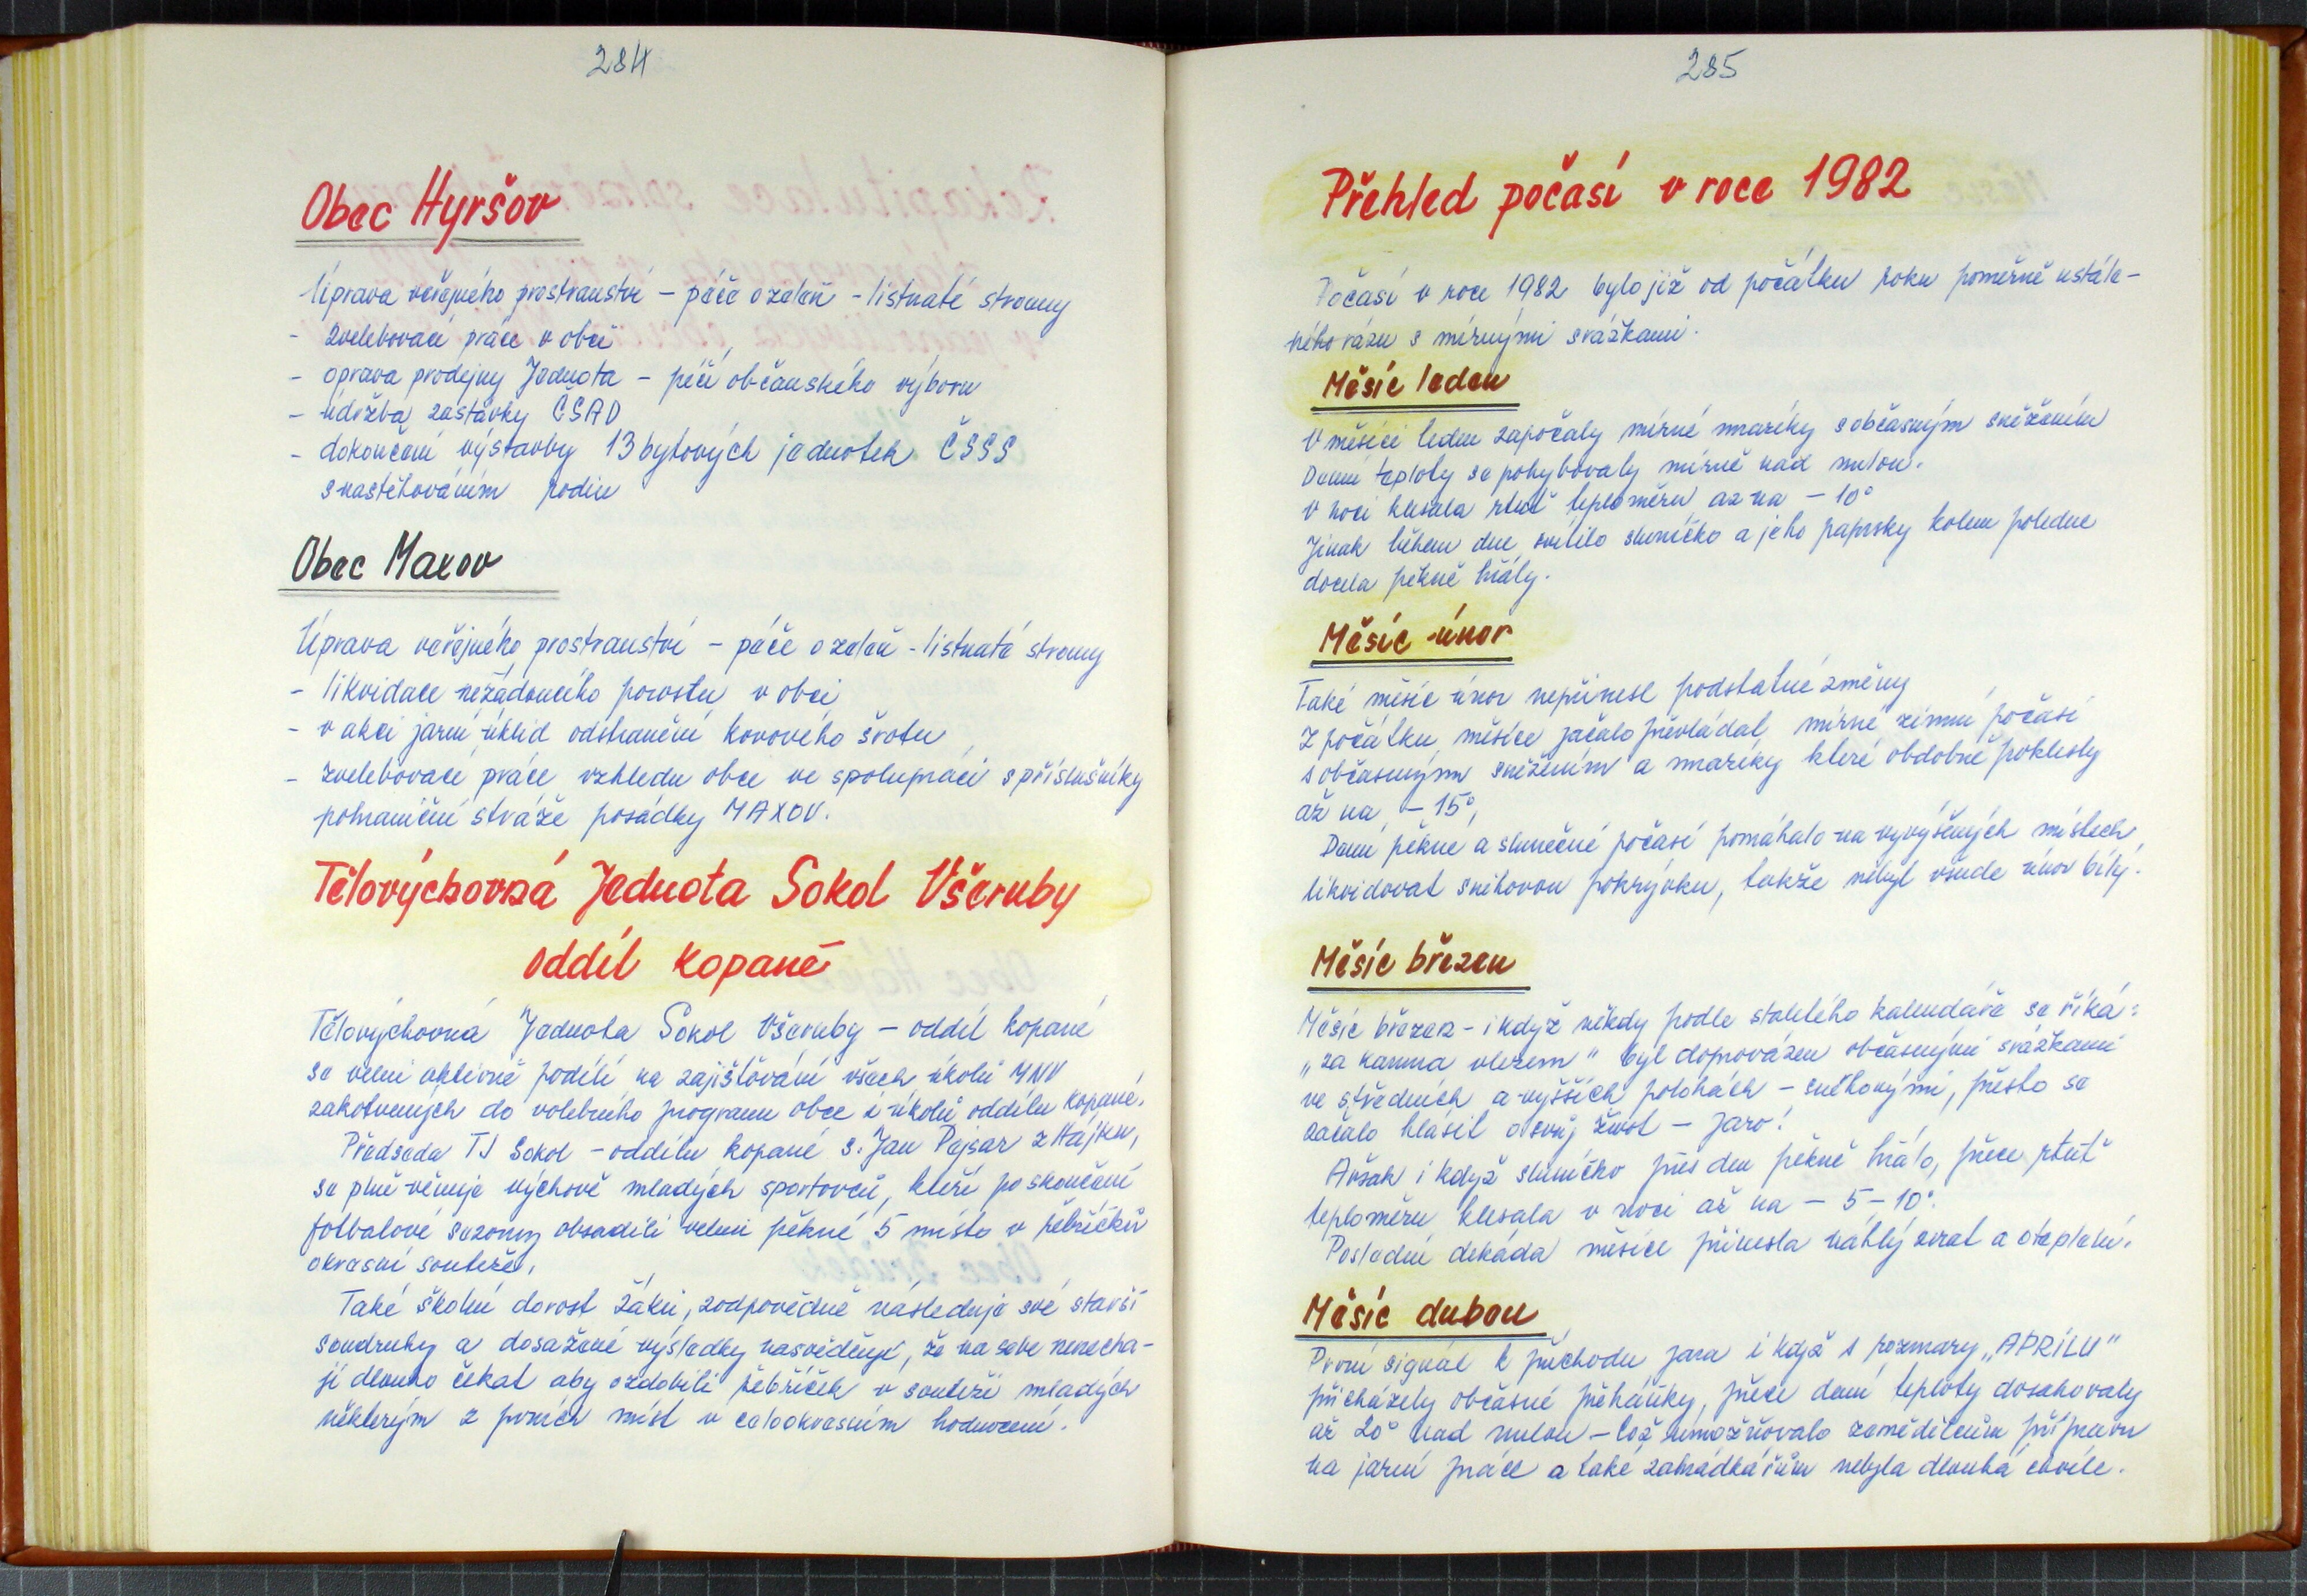 284
Obec Hyršov
Úprava veřejného prostranství – péče o zeleň – listnaté stromy
– zvelebovací práce v obci
– oprava prodejny Jednota – péčí občanského výboru
– údržba zastávky ČSAD
– dokončení výstavby 13 bytových jednotek ČSSS
s nastěhováním rodin
Obec Maxov
Úprava veřejného prostranství – péče o zeleň – listnaté stromy
– likvidace nežádoucího porostu v obci
– v akci jarní úklid odstranění kovového šrotu
– zvelebovací práce vzhledu obce ve spolupráci s příslušníky
pohraniční stráže posádky MAXOV.
Tělovýchovná Jednota Sokol Všeruby
oddíl kopané
Tělovýchovná Jednota Sokol Všeruby – oddíl kopané
se velmi aktivně podílí na zajišťování všech úkolů MNV
zakotvených do volebního programu obce i úkolů oddílu kopané.
Předseda TJ Sokol – oddílu kopané s. Jan Pajsar z Hájku,
se plně věnuje výchově mladých sportovců, kteří po skončení
fotbalové sezony obsadili velmi pěkné 5 místo v žebříčku
okresní soutěže.
Také školní dorost žáků, zodpovědně následuje své starší
soudruhy a dosažené výsledky nasvědčují, že na sebe nenecha-
jí dlouho čekat aby ozdobili žebříček v soutěži mladých
některým z prvních míst v celookresním hodnocení.
285
Přehled počasí v roce 1982
Počasí v roce 1982 bylo již od počátku roku poměrně ustále-
ného rázu s mírnými srážkami.
Měsíc leden
V měsíci lednu započaly mírné mrazíky s občasným sněžením
Denní teploty se pohybovaly mírně nad nulou.
V noci klesala rtuť teploměru až na – 10°
Jinak během dne svítilo sluníčko a jeho paprsky kolem poledne
docela pěkně hřály.
Měsíc únor
Také měsíc únor nepřinesl podstatné změny
Z počátku měsíce začalo převládat mírné zimní počasí
s občasným sněžením a mrazíky které obdobně poklesly
až na – 15°,
Denní pěkné a slunečné počasí pomáhalo na vyvýšených místech
likvidovat sněhovou pokrývku, takže nebyl všude únor bílý.
Měsíc březen
Měsíc březen – i když někdy podle stoletého kalendáře se říká:
„za kamna vlezem" byl doprovázen občasnými srážkami
ve středních a vyšších polohách – sněhovými, přesto se
začalo hlásit o svůj život – jaro!
Avšak i když sluníčko přes den pěkně hřálo, přece rtuť
teploměru klesala v noci až na – 5 – 10°.
Poslední dekáda měsíce přinesla náhlý zvrat a oteplení.
Měsíc duben
První signál k příchodu jara i když s rozmary „APRÍLU"
přicházely občasné přeháňky, přece denní teploty dosahovaly
až 20° nad nulou – což umožňovalo zemědělcům přípravu
na jarní práce a také zahrádkářům nebyla dlouhá chvíle.